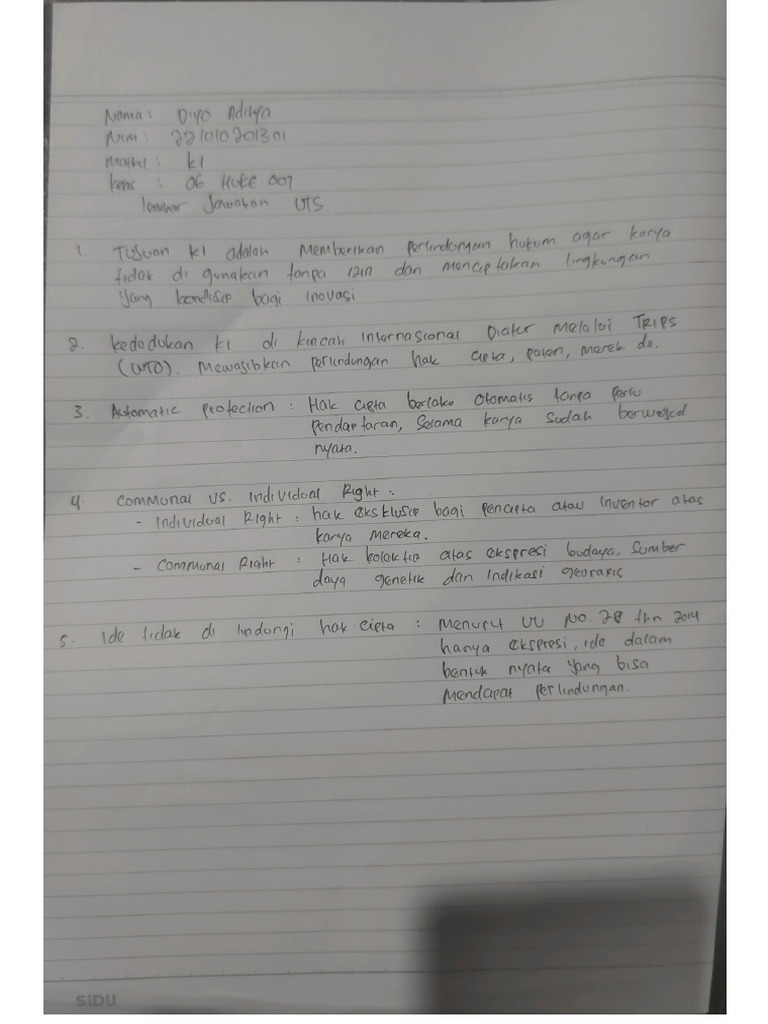 Nama : Diyo Aditya
Nim : 221010201301
Matkul : KI
Kelas : 06 HUKE 007
lembar Jawaban UTS
1. Tujuan KI adalah Memberikan perlindungan hukum agar karya
tidak di gunakan tanpa izin dan menciptakan lingkungan
yang kondusip bagi inovasi
2. Kedodukan KI di kancah Internasional Diatur melaloi TRIPS
(WTO). Mewajibkan perlindungan hak cipta, paten, merek dll.
3. Automatic protection : Hak cipta berlako otomatis tanpa perlu
pendaptaran, selama karya sudah berwujud
nyata.
4 Communal vs. Individual Right :
- Individual Right : hak eksklusip bagi pencipta atau inventor atas
karya mereka.
- Communal Right : Hak kolektip atas ekspresi budaya, sumber
daya genetik dan indikasi georapis
5. Ide tidak di lindungi hak cipta : Menurut UU No. 28 thn 2014
hanya ekspresi, ide dalam
bentuk nyata yang bisa
mendapat perlindungan.
SiDU